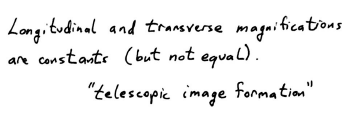 Longitudinal and transverse magnifications
are constants (but not equal).
"telescopic image formation"